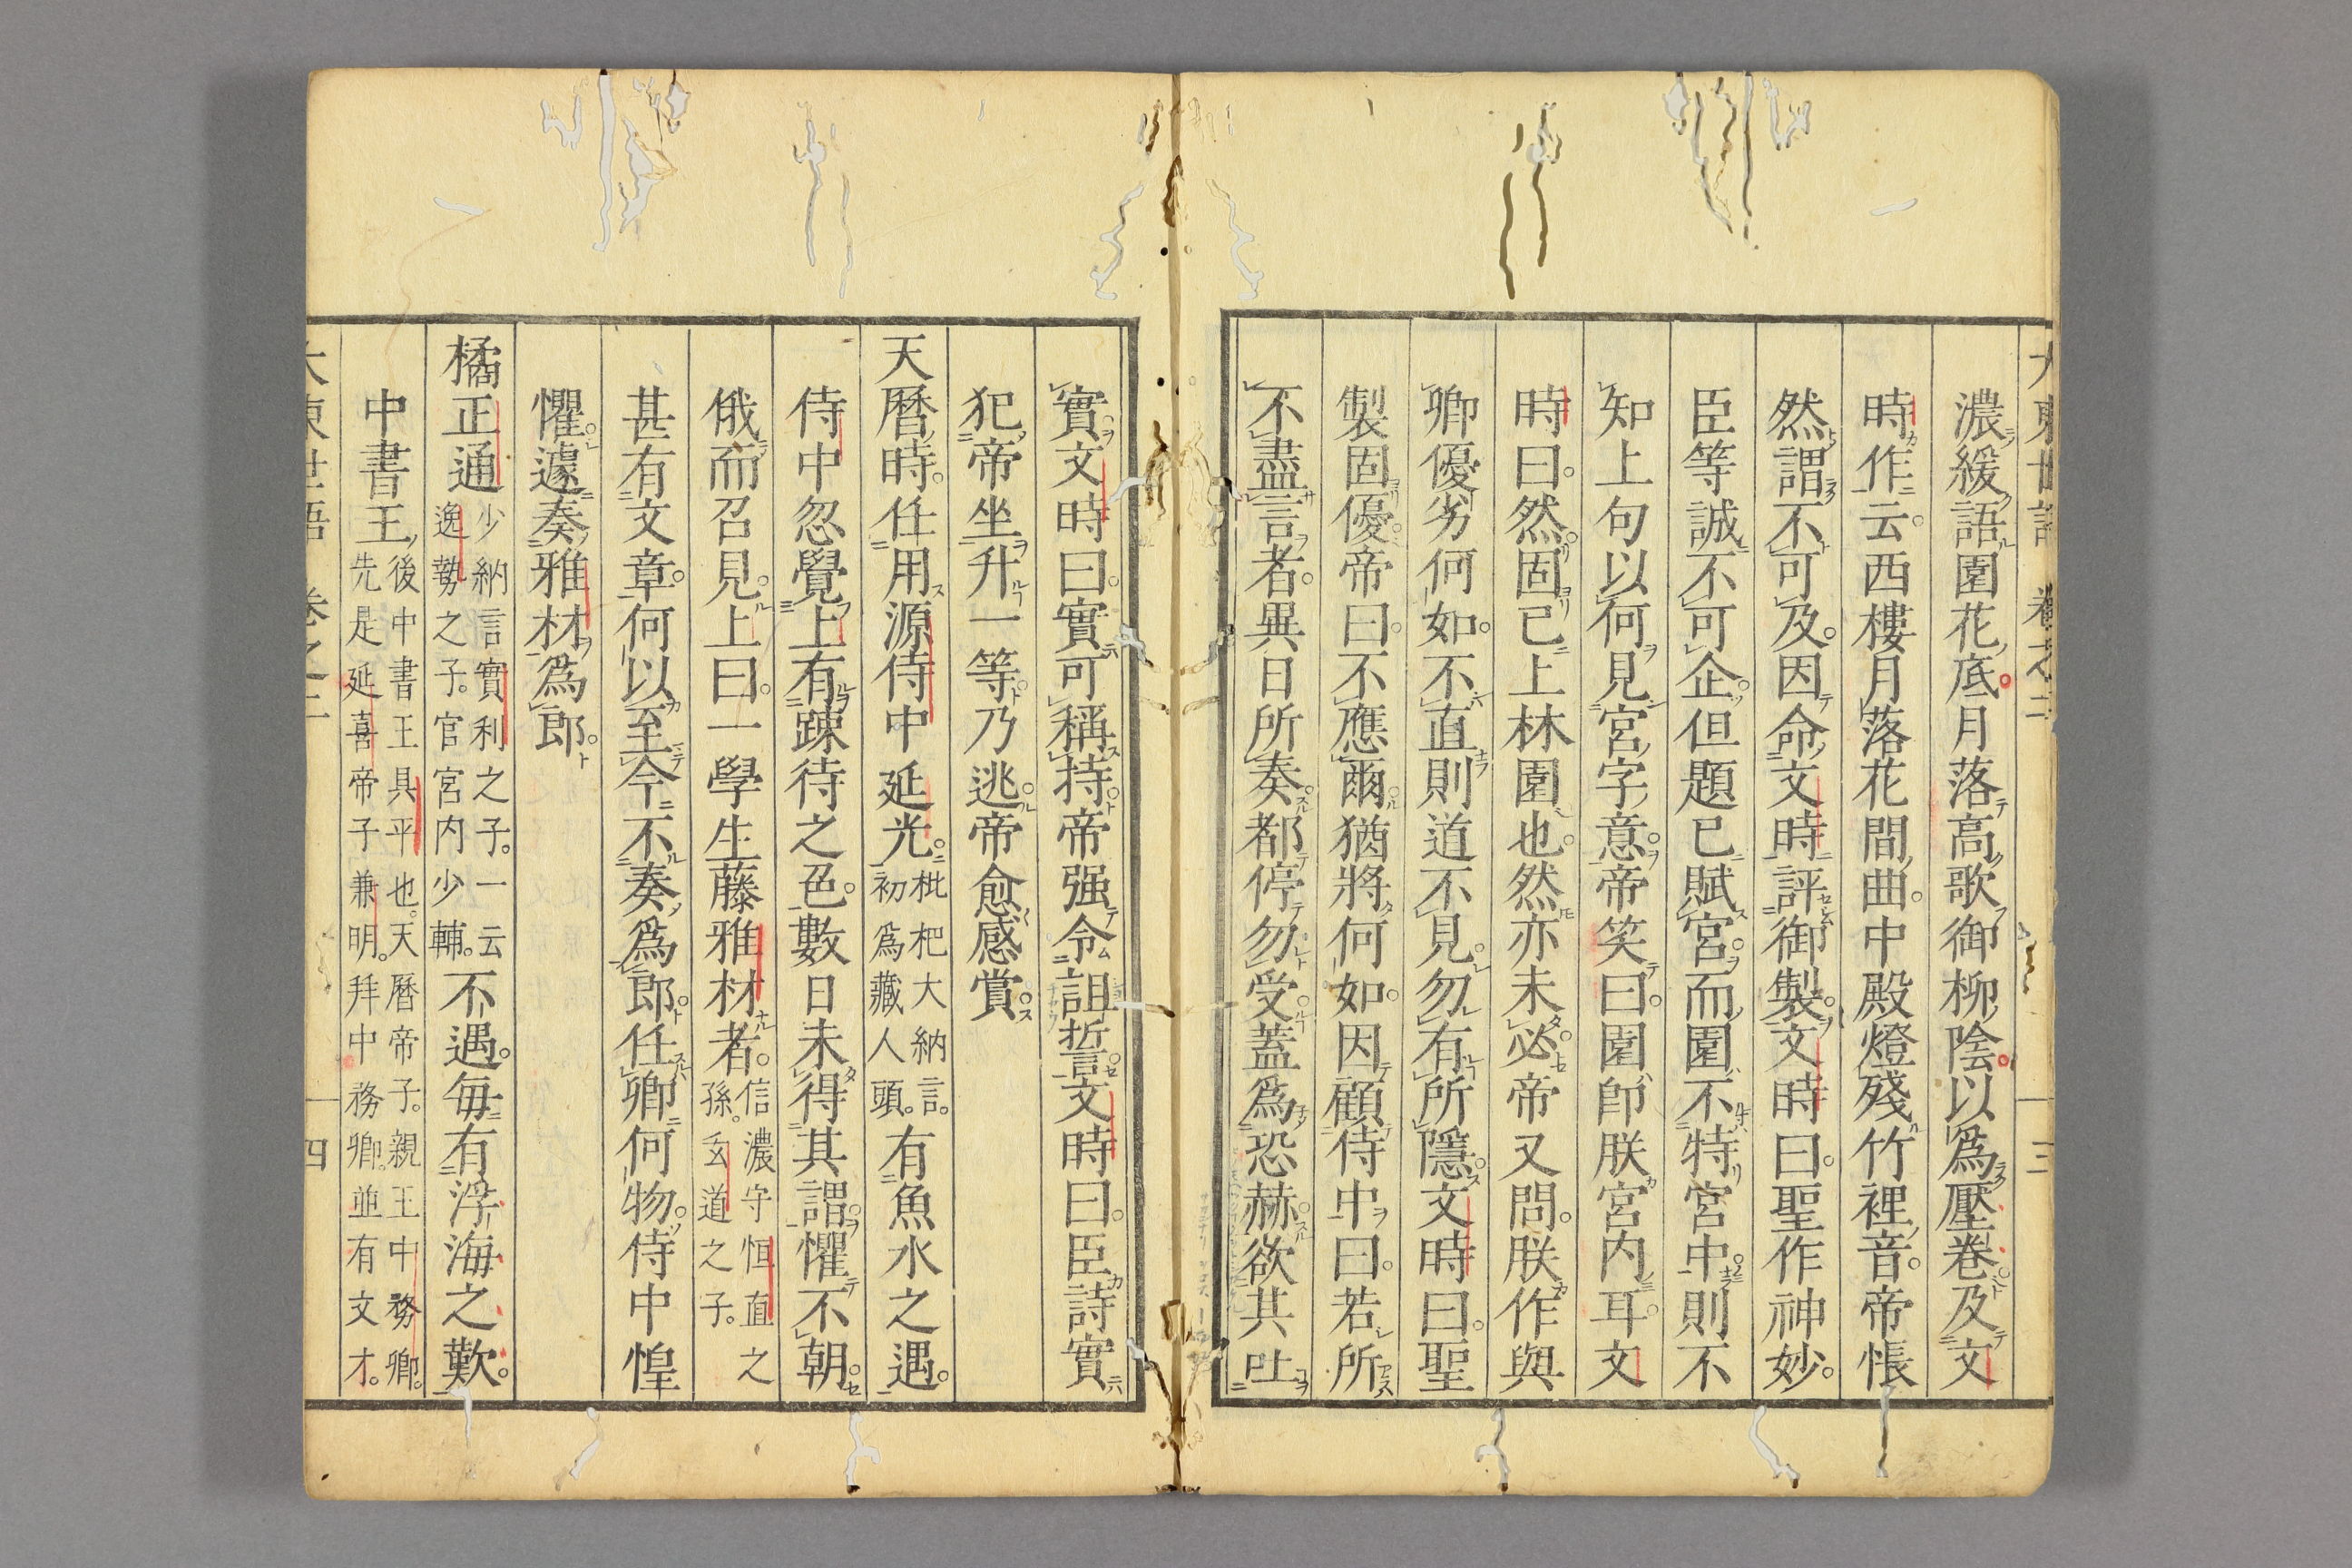 大東世語 卷之二 三
濃緩語園花底月落高歌御柳陰以爲壓卷及文
時作云西樓月落花間曲中殿燈殘竹裡音帝悵
然謂不可及因命文時評御製文時曰聖作神妙
臣等誠不可企但題已賦宮而園不特宮中則不
知上句以何見宮字意帝笑曰園卽朕宮内耳文
時曰然固已上林園也然亦未必帝又問朕作與
卿優劣何如不直則道不見勿有所隱文時曰聖
製固優帝曰不應爾猶將何如因顧侍中曰若所
不盡言者異日所奏都停勿受蓋爲恐赫欲其吐
實文時曰實可稱持帝强令詛誓文時曰臣詩實
犯帝坐升一等乃逃帝愈感賞
天曆時任用源侍中延光枇杷大納言初爲藏人頭有魚水之遇
侍中忽覺上有踈待之色數日未得其謂懼不朝
俄而召見上曰一學生藤雅材者信濃守恒直之孫玄道之子
甚有文章何以至今不奏爲郎任卿何物侍中惶
懼遽奏雅材爲郎
橘正通少納言實利之子一云逸勢之子官宮内少輔不遇毎有浮海之歎
中書王後中書王具平也天曆帝子親王中務卿先是延喜帝子兼明拜中務卿並有文才
大東世語 卷之二 四